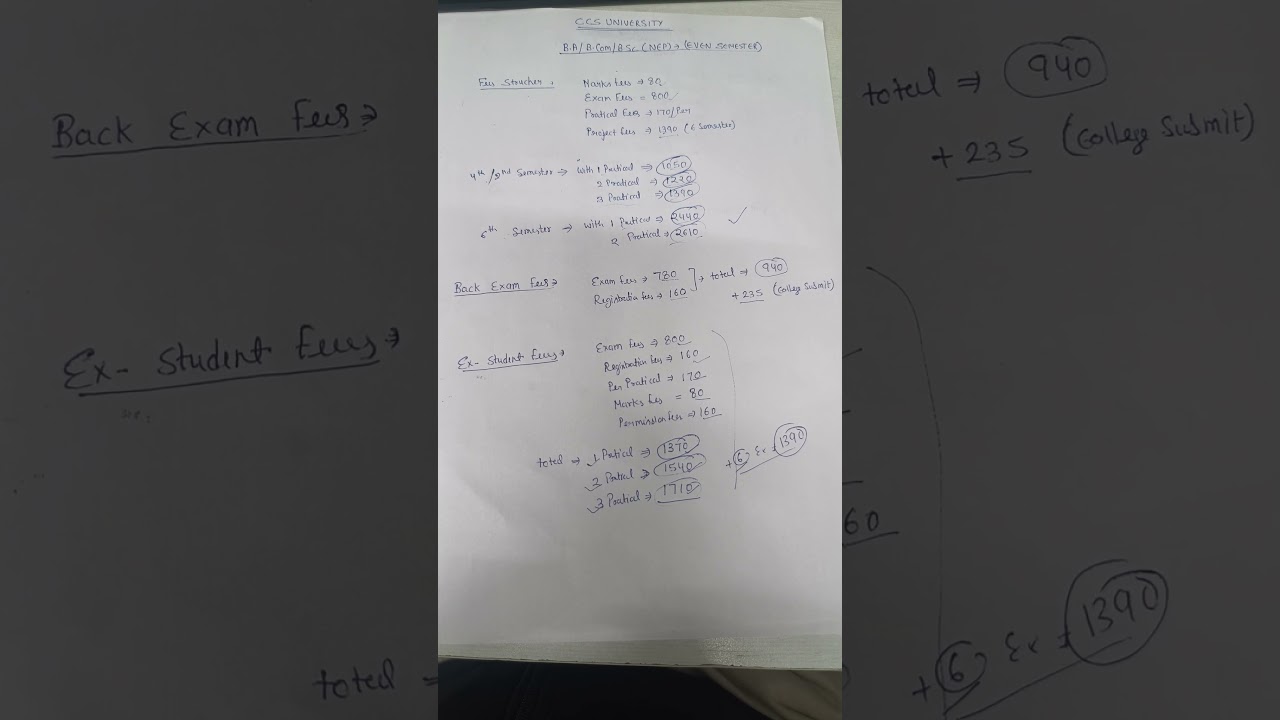 C.C.S. UNIVERSITY
B.A/B.Com/B.Sc. (NEP) → (EVEN SEMESTER)
Fees Strucher,
Marks fees → 80
Exam Fees = 800
Pratical Fees → 170/Per
Project fees → 1390 (6 Semester)
4th/2nd Semester → with 1 Pratical ⇒ 1050
2 Pratical → 1220
3 Pratical ⇒ 1390
6th Semester → with 1 Pratical ⇒ 2440
2 Pratical → 2610
Back Exam Fees → Exam fees → 780
Registration fees → 160
total ⇒ 940
+ 235 (College Submit)
Ex- Student Fees → Exam fees → 800
Registration fees → 160
Per Pratical → 170
Marks fees = 80
Permission fees → 160
total ⇒ 1 Pratical ⇒ 1370
2 Pratical ⇒ 1540
3 Pratical ⇒ 1710
+ 6 Ex → 1390
Back Exam Fees →
Ex- Student Fees →
total =
total ⇒ 940
+ 235 (College Submit)
60
+ 6 Ex → 1390